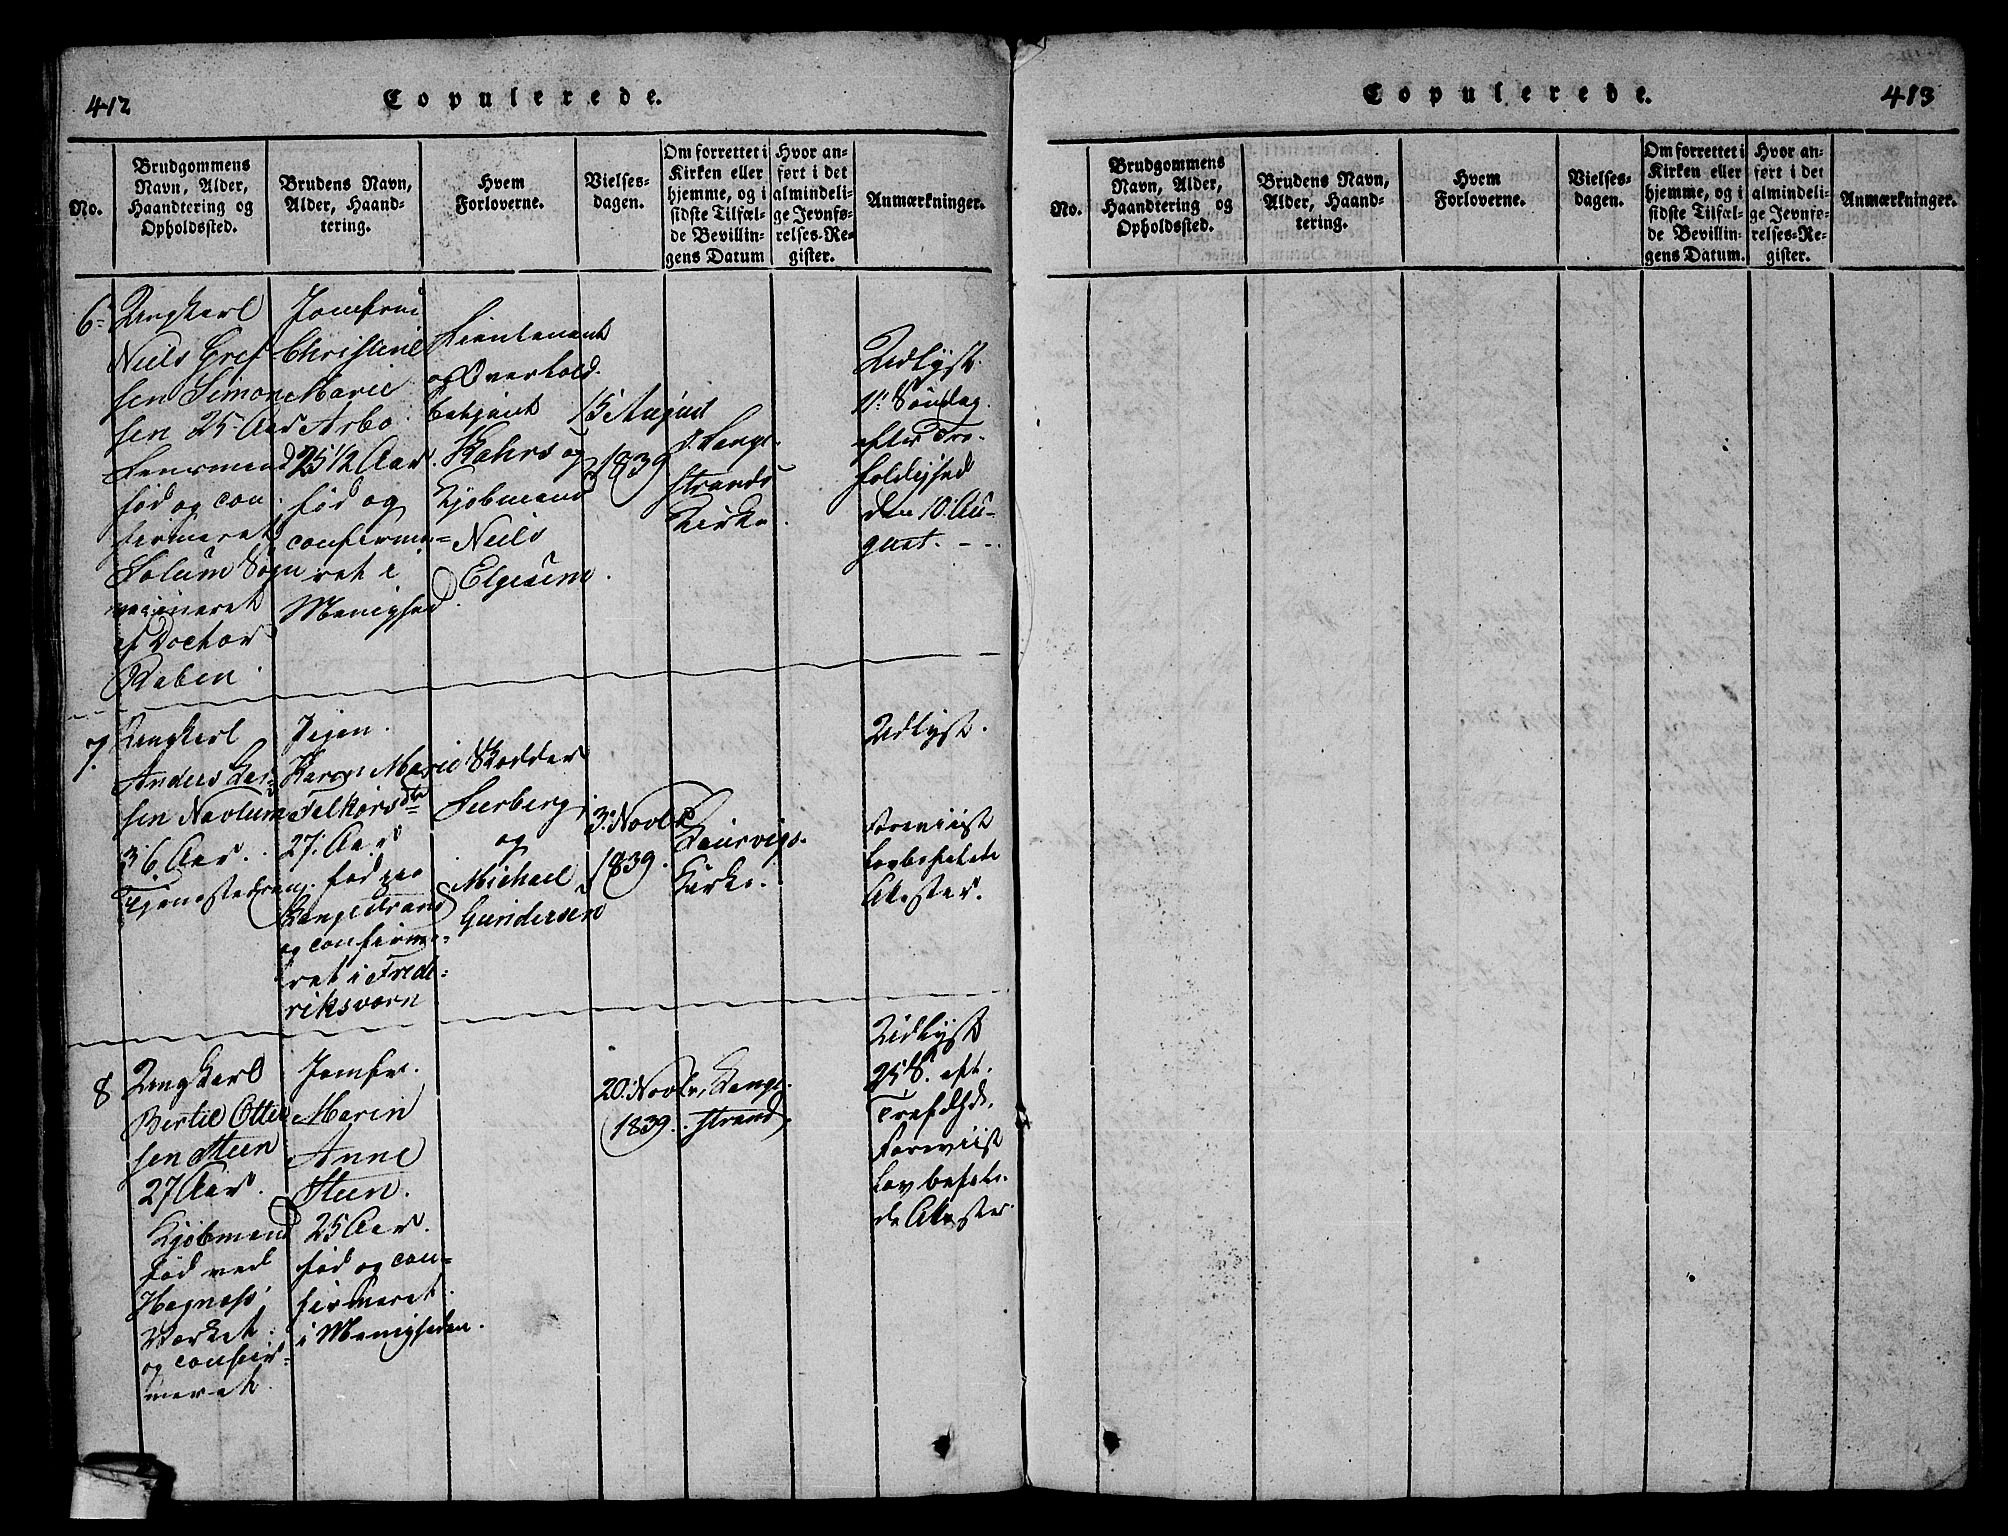 412
Copulerede.
No.
Brudgommens
Navn, Alder,
Haandtering og
Opholdssted.
Brudens Navn,
Alder, Haand-
tering.
Hvem
Forloverne.
Vielses-
dagen.
Om forrettet i
Kirken eller
hjemme, og i
sidste Tilfæl-
de Bevillin-
gens Datum
Hvor an-
ført i det
almindeli-
ge Jevnfø-
relses-Re-
gister.
Anmærkninger.
6
Ungkarl
Niels Gref
sen Simon
sen 25 Aar
Lensmand
fød og con
firmeret
Solum Sogn
vacineret
af Doctor
Raben
Jomfru
Christine
Marie
Arbo
25 1/2 Aar
fød og
confirme=
ret i
Menighed
Lieutenant
og Overtold
betjent
Kahrs og
Kjøbmand
Niels
Elgesem.
15 August
1839
Lange
strands
Kirke.
Udlyst
11. Søndag
efter Tre-
foldighed
den 10. Au-
gust.
7.
Ungkarl
Anders Lar
sen Navlum
36 Aar.
Tjenestedreng.
Pigen.
Karen Marie
Felkorsdtr
27. Aar
fød paa
Langestrand
og confirme=
ret i Frede=
riksværn
Skodder
Seerberg
og
Michael
Gundersen
3. Novbr
1839.
Laurvigs
Kirke.
Udlyst.
Foreviist
Lovbefalede
Attester.
8
Ungkarl
Bertil Otte
sen Steen
27 Aar.
Kjøbmand
fød ved
Hagnæss
Værket
og confir=
meret.
Jomfr.
Maren
Anne
Steen.
25 Aar.
fød og con=
firmeret
i Menigheden.
20. Novbr.
1839.
Lange
strand.
Udlyst
25 S. eft.
Trefdghd.
Foreviist
Lovbefale-
de Attester.
Copulerede.
483
No.
Brudgommens
Navn, Alder,
Haandtering og
Opholdssted.
Brudens Navn,
Alder, Haand-
tering.
Hvem
Forloverne.
Vielses-
dagen.
Om forrettet i
Kirken eller
hjemme, og i
sidste Tilfæl-
de Bevillin-
gens Datum.
Hvor an-
ført i det
almindeli-
ge Jevnfø-
relses-Re-
gister.
Anmærkninger.